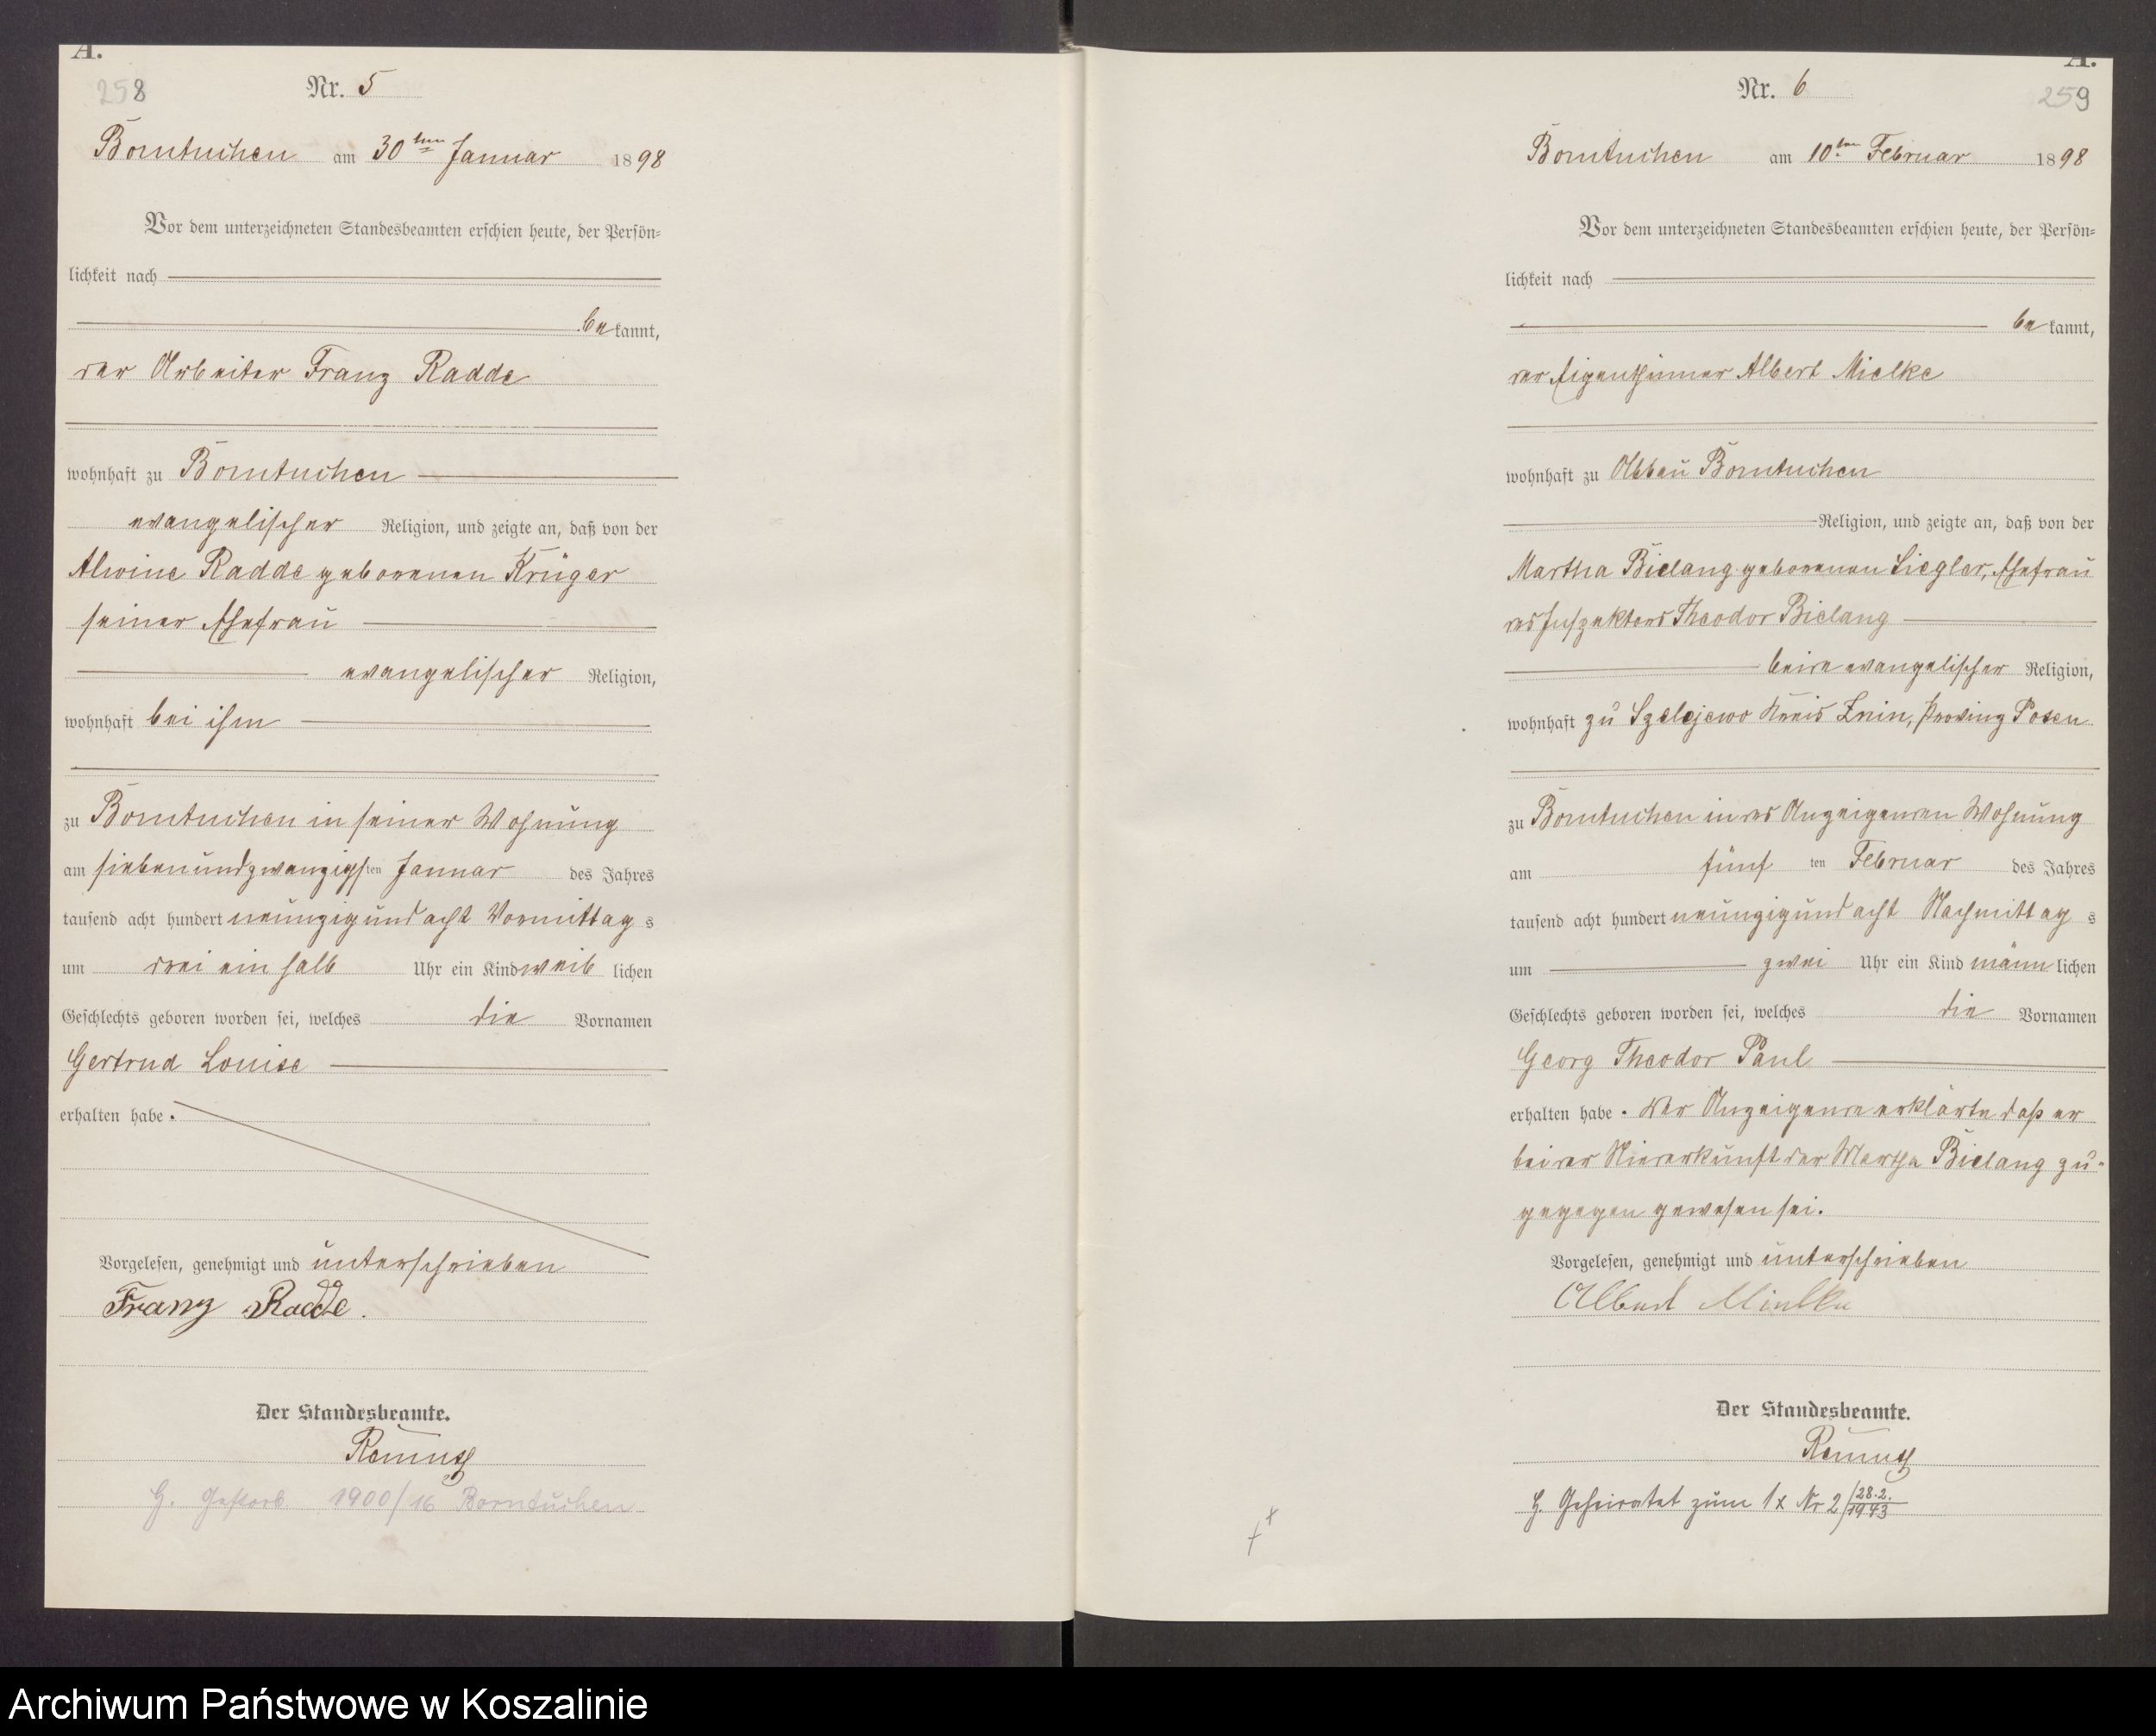 A.
258
Nr. 5
Borntuchen am 30ten Januar 1898
Vor dem unterzeichneten Standesbeamten erschien heute, der Persön=
lichkeit nach
bekannt,
der Arbeiter Franz Radde
wohnhaft zu Borntuchen
evangelischer Religion, und zeigte an, daß von der
Alwine Radde geborenen Krüger
seiner Ehefrau
evangelischer Religion,
wohnhaft bei ihm
zu Borntuchen in seiner Wohnung
am siebenundzwanzigsten Januar des Jahres
tausend acht hundert neunzig und acht Vormittags
um drei ein halb Uhr ein Kind weiblichen
Geschlechts geboren worden sei, welches die Vornamen
Gertrud Louise
erhalten habe.
Vorgelesen, genehmigt und unterschrieben
Franz Radde.
Der Standesbeamte.
G. Gestorb. 1900/16 Borntuchen
A.
259
Nr. 6
Borntuchen am 10ten Februar 1898
Vor dem unterzeichneten Standesbeamten erschien heute, der Persön=
lichkeit nach
bekannt,
der Eigenthümer Albert Mielke
wohnhaft zu Abbau Borntuchen
Religion, und zeigte an, daß von der
Martha Bielang geborenen Siegler, Ehefrau
des Inspektors Theodor Bielang
beide evangelischer Religion,
wohnhaft zu Szelejewo Kreis Znin, Provinz Posen
zu Borntuchen in des Anzeigenden Wohnung
am fünften Februar des Jahres
tausend acht hundert neunzig und acht Nachmittags
um zwei Uhr ein Kind männlichen
Geschlechts geboren worden sei, welches die Vornamen
Georg Theodor Paul
erhalten habe. Der Anzeigende erklärte daß er
bei der Niederkunft der Martha Bielang zu=
gegegen gewesen sei.
Vorgelesen, genehmigt und unterschrieben
Albert Mielke
Der Standesbeamte.
G. Geheiratet zum 1x Nr 2/28.2.1943
Archiwum Państwowe w Koszalinie